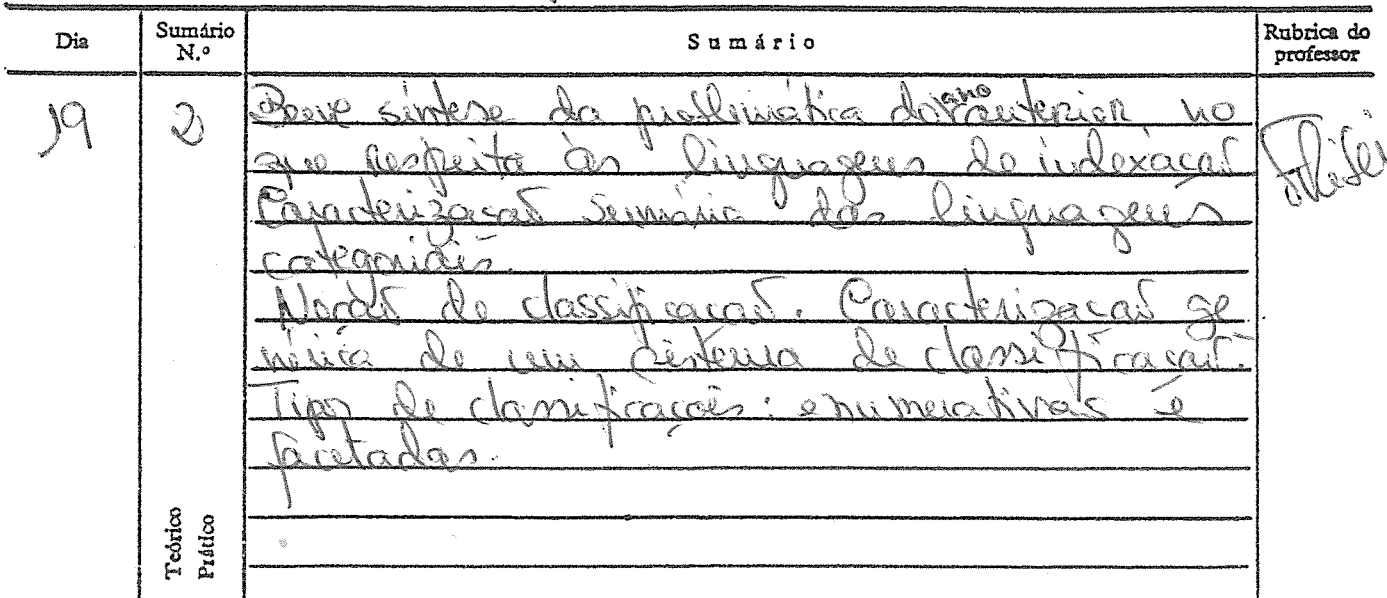 Dia
Sumário
N.º
Sumário
Rubrica do
professor
19
2
Breve síntese da problemática do ano anterior no
que respeita às linguagens de indexação
Caracterização sumária das linguagens
categoriais.
Noção de classificação. Caracterização ge
nérica de um sistema de classificação.
Tipos de classificações: enumerativas e
facetadas.
Teórico
Prático